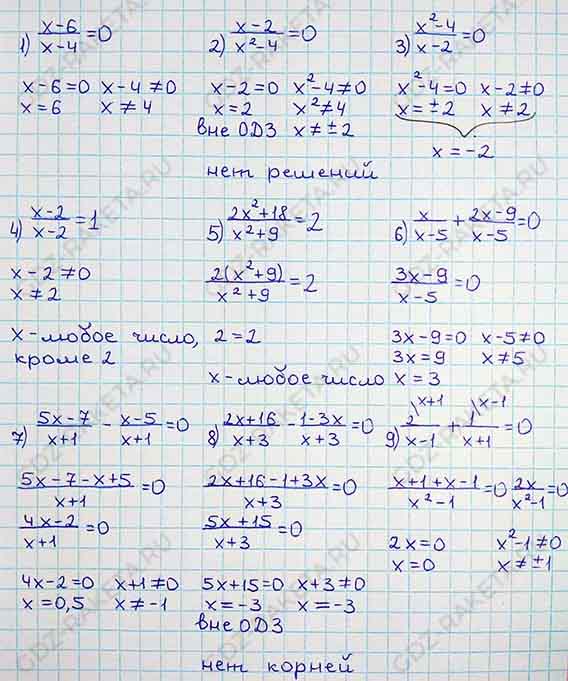 1) (x-6)/(x-4)=0
x-6=0 x-4≠0
x=6 x≠4
2) (x-2)/(x²-4)=0
x-2=0 x²-4≠0
x=2 x²≠4
вне ОДЗ x≠±2
нет решений
3) (x²-4)/(x-2)=0
x²-4=0 x-2≠0
x=±2 x≠2
x=-2
4) (x-2)/(x-2)=1
x-2≠0
x≠2
x-любое число,
кроме 2
5) (2x²+18)/(x²+9)=2
2(x²+9)/(x²+9)=2
2=2
x-любое число
6) x/(x-5)+(2x-9)/(x-5)=0
(3x-9)/(x-5)=0
3x-9=0 x-5≠0
3x=9 x≠5
x=3
7) (5x-7)/(x+1)-(x-5)/(x+1)=0
(5x-7-x+5)/(x+1)=0
(4x-2)/(x+1)=0
4x-2=0 x+1≠0
x=0,5 x≠-1
8) (2x+16)/(x+3)-(1-3x)/(x+3)=0
(2x+16-1+3x)/(x+3)=0
(5x+15)/(x+3)=0
5x+15=0 x+3≠0
x=-3 x=-3
вне ОДЗ
нет корней
9) 2\x+1/(x-1)+1\x-1/(x+1)=0
(x+1+x-1)/(x²-1)=0 2x/(x²-1)=0
2x=0 x²-1≠0
x=0 x≠±1
GDZ-RAKETA.RU